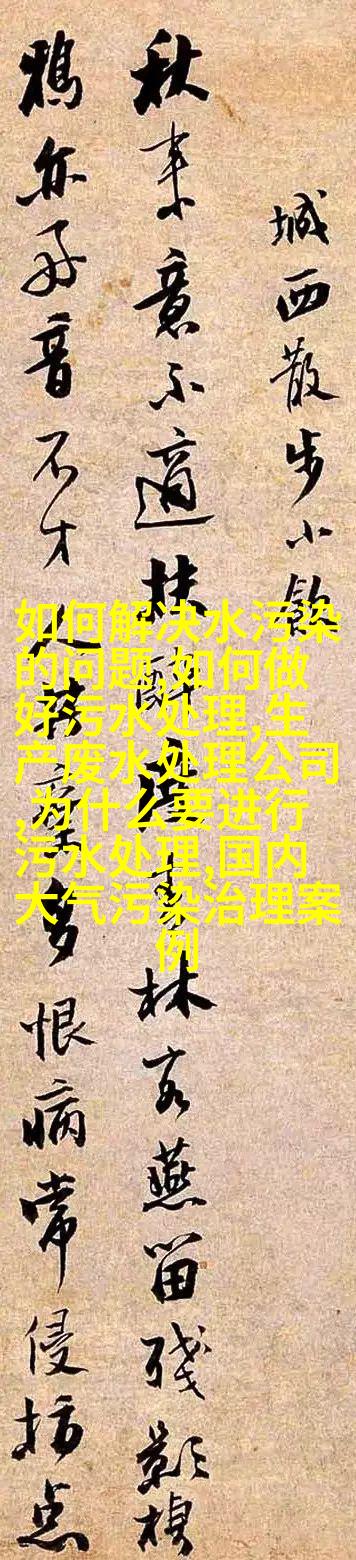 城西散步小飲
秋来意不適扶醉林客燕留殘影棲
鴉亦好音不才人棄多恨病常侵点
如何解决水污染
的问题,如何做
好污水处理,生
产废水处理公司
,为什么要进行
污水处理,国内
大气污染治理案
例